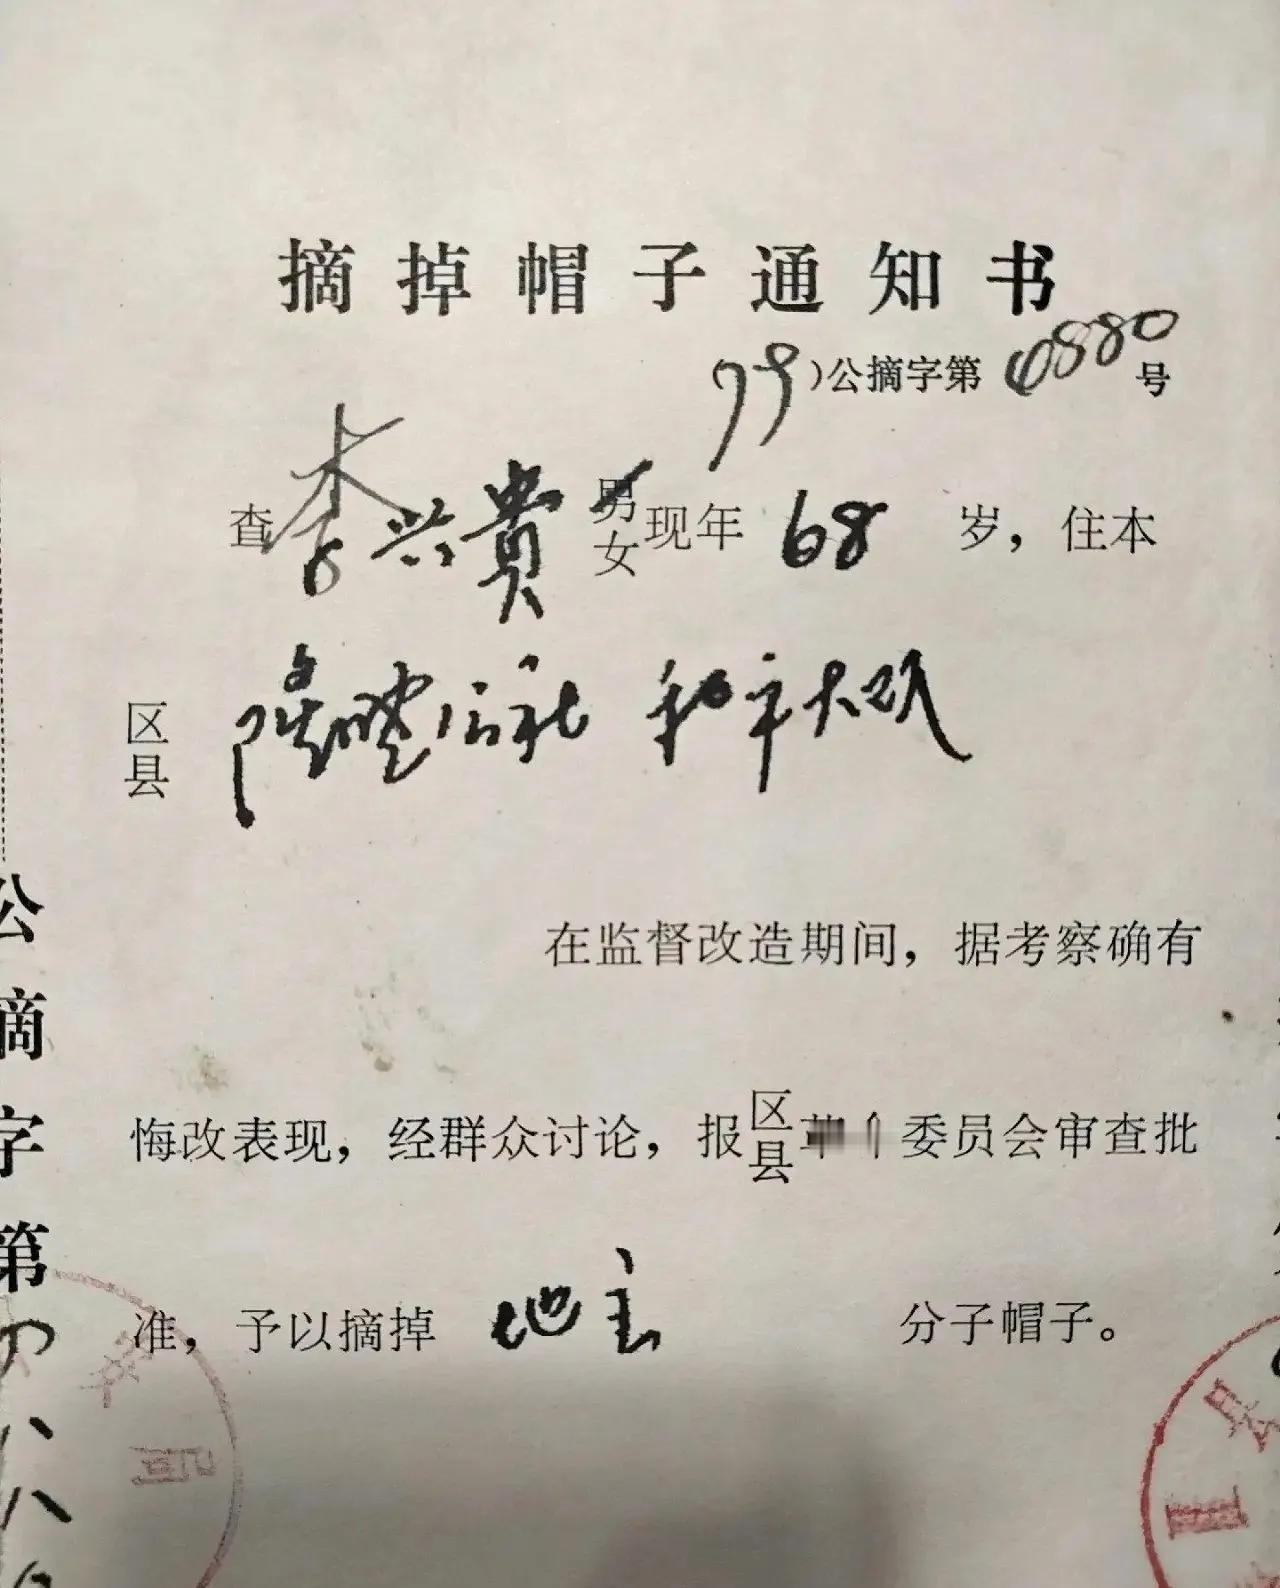 摘掉帽子通知书
(79)公摘字第0880号
查李兴贵男女现年68岁，住本
区县 隆兴公社 和平大队
在监督改造期间，据考察确有
悔改表现，经群众讨论，报区县委员会审查批
准，予以摘掉地主分子帽子。
公摘字第
八八
安局
县